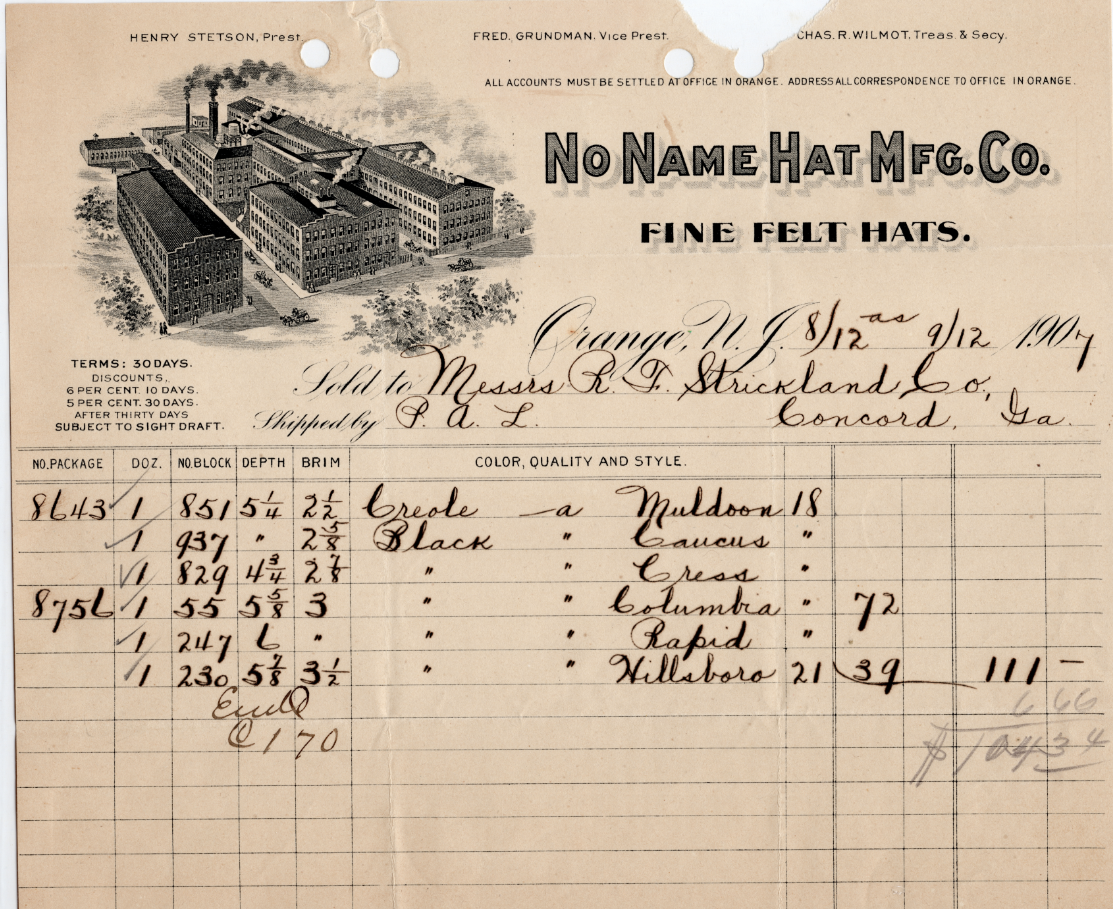 HENRY STETSON, Prest. FRED. GRUNDMAN. Vice Prest. CHAS. R. WILMOT, Treas. & Secy.
ALL ACCOUNTS MUST BE SETTLED AT OFFICE IN ORANGE. ADDRESS ALL CORRESPONDENCE TO OFFICE IN ORANGE.
NO NAME HAT MFG. CO.
FINE FELT HATS.
Orange, N. J. 8/12 as 9/12 1907
TERMS: 30 DAYS.
DISCOUNTS,
6 PER CENT. 10 DAYS.
5 PER CENT. 30 DAYS.
AFTER THIRTY DAYS
SUBJECT TO SIGHT DRAFT.
Sold to Messrs R. F. Strickland Co,
Shipped by P. A. L. Concord, Ga.
NO. PACKAGE DOZ. NO. BLOCK DEPTH BRIM COLOR, QUALITY AND STYLE.
8643 1 851 5 1/4 2 1/2 Creole — a Muldoon 18
1 937 " 2 5/8 Black " Caucus "
1 829 4 3/4 2 7/8 " " Cress "
8756 1 55 5 5/8 3 " " Columbia " 72
1 247 6 " " " Rapid "
1 230 5 7/8 3 1/2 " " Hillsboro 21 39 111 —
6 66
C 170
$ 104 34